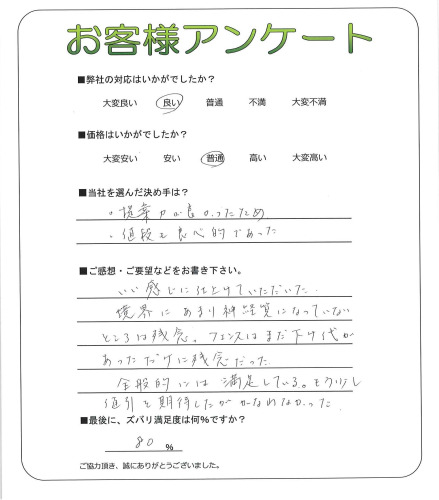 お客様アンケート
■弊社の対応はいかがでしたか？
大変良い 良い 普通 不満 大変不満
■価格はいかがでしたか？
大変安い 安い 普通 高い 大変高い
■当社を選んだ決め手は？
・提案力が良かったため
・値段も良心的であった
■ご感想・ご要望などをお書き下さい。
いい感じに仕上げていただいた。
境界にあまり神経質になっていない
ところは残念。フェンスはまだ下げ代が
あっただけに残念だった
全般的には満足している。もう少し
値引を期待したがかなわなかった。
■最後に、ズバリ満足度は何％ですか？
80 ％
ご協力頂き、誠にありがとうございました。